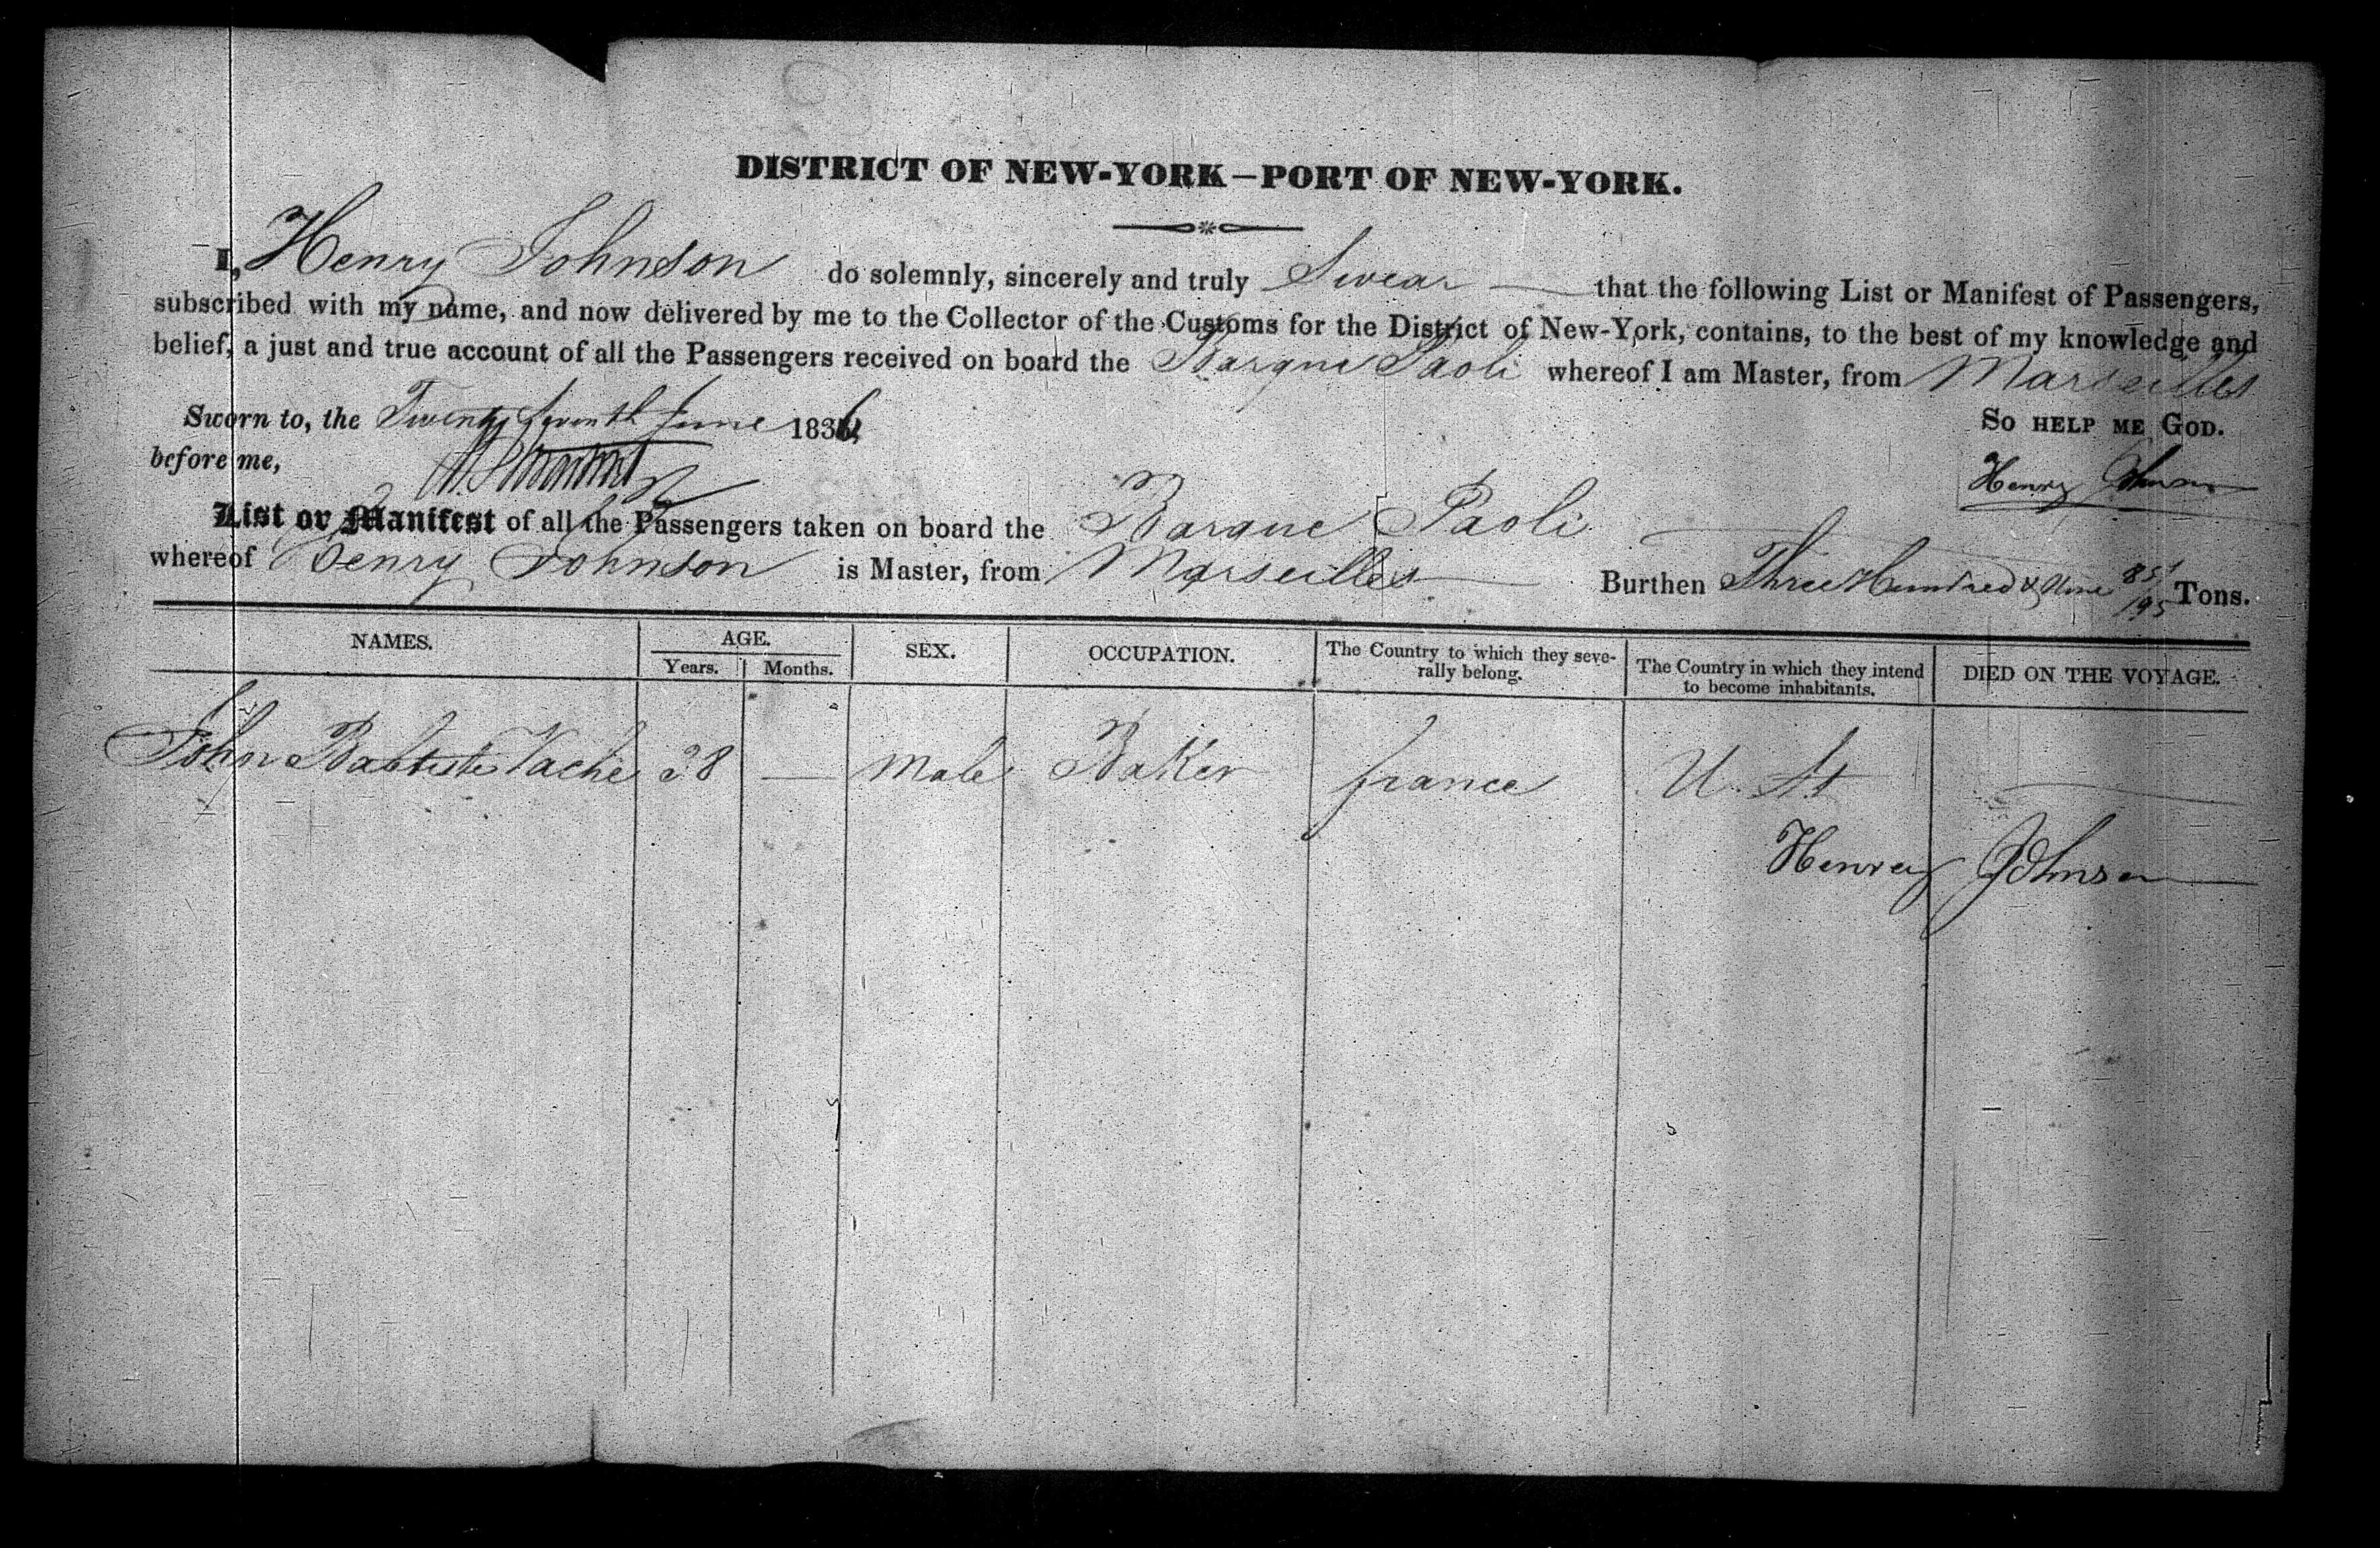 DISTRICT OF NEW-YORK—PORT OF NEW-YORK.
I, Henry Johnson do solemnly, sincerely and truly Swear that the following List or Manifest of Passengers,
subscribed with my name, and now delivered by me to the Collector of the Customs for the District of New-York, contains, to the best of my knowledge and
belief, a just and true account of all the Passengers received on board the Barque Paoli whereof I am Master, from Marseilles
Sworn to, the Twenty Seventh June 1836
So HELP ME GOD.
before me,
Henry Johnson
List or Manifest of all the Passengers taken on board the Barque Paoli
whereof Henry Johnson is Master, from Marseilles Burthen Three Hundred & Nine 85/95 Tons.
NAMES. AGE. SEX. OCCUPATION. The Country to which they seve-
rally belong. The Country in which they intend
to become inhabitants. DIED ON THE VOYAGE.
Years. Months.
John Babtiste Vache 28 — Male Baker france U. St
Henry Johnson